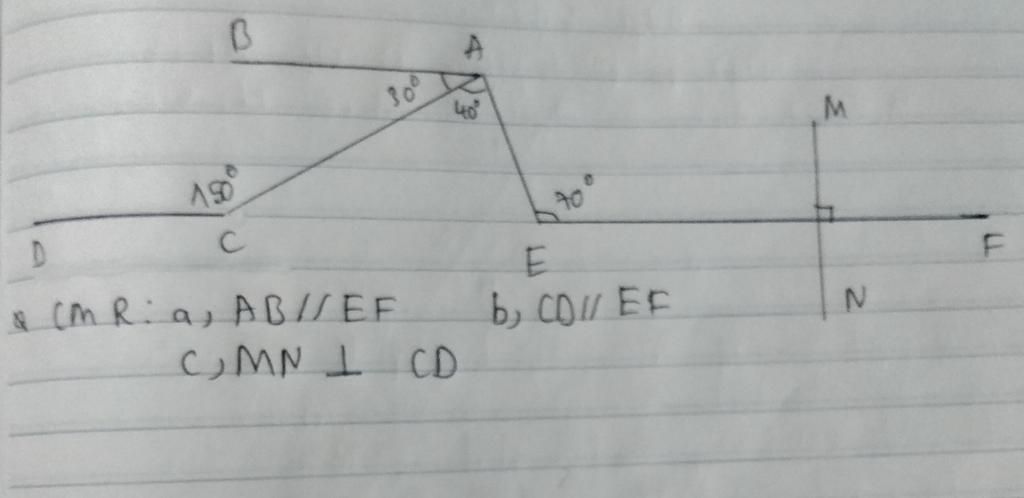 B A
30° 40° M
150° 70°
D C E F
N
CMR: a, AB // EF b, CD // EF
C, MN ⊥ CD